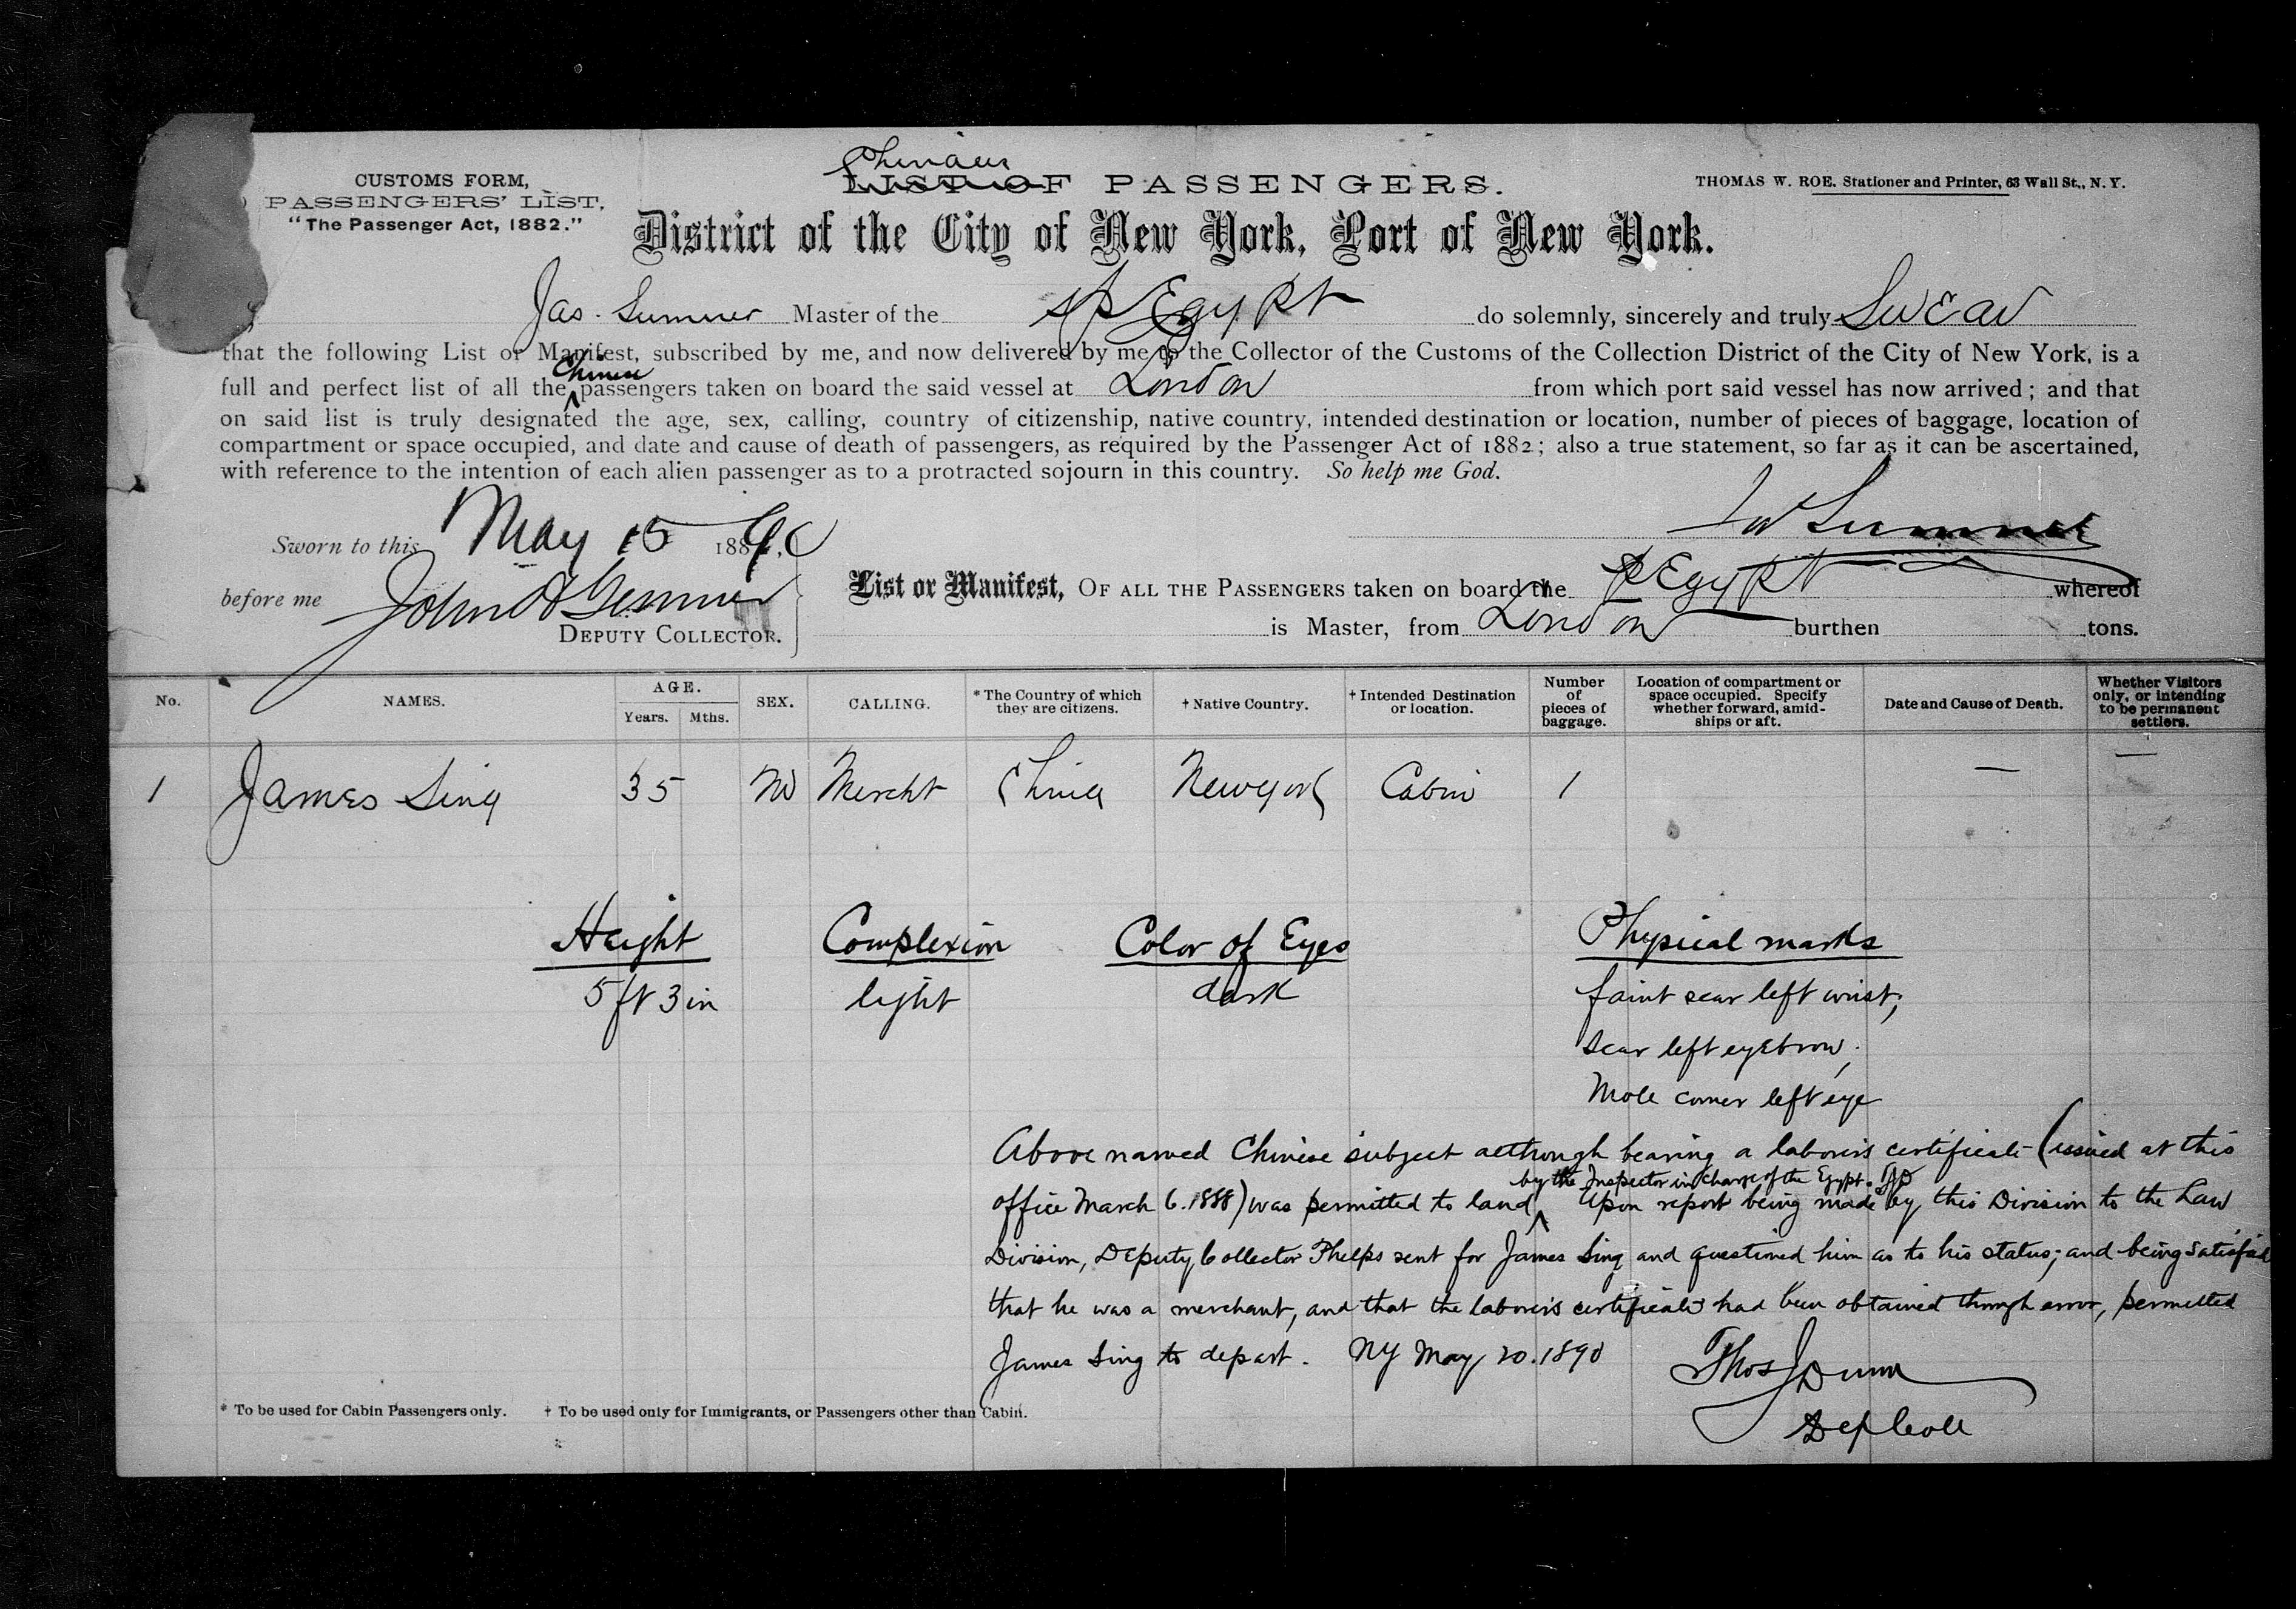 CUSTOMS FORM,
PASSENGERS' LIST.
"The Passenger Act, 1882."
Chinese
LIST OF PASSENGERS.
THOMAS W. ROE. Stationer and Printer, 63 Wall St., N. Y.
District of the City of New York, Port of New York.
Jas. Sumner Master of the SS Egypt do solemnly, sincerely and truly Swear
that the following List or Manifest, subscribed by me, and now delivered by me to the Collector of the Customs of the Collection District of the City of New York, is a
Chinese
full and perfect list of all the passengers taken on board the said vessel at London from which port said vessel has now arrived; and that
on said list is truly designated the age, sex, calling, country of citizenship, native country, intended destination or location, number of pieces of baggage, location of
compartment or space occupied, and date and cause of death of passengers, as required by the Passenger Act of 1882; also a true statement, so far as it can be ascertained,
with reference to the intention of each alien passenger as to a protracted sojourn in this country. So help me God.
Sumner
Sworn to this May 15 1890
before me John
DEPUTY COLLECTOR.
List or Manifest, OF ALL THE PASSENGERS taken on board the Egypt whereof
is Master, from London burthen tons.
No. NAMES. AGE. Years. Mths. SEX. CALLING. * The Country of which they are citizens. † Native Country. † Intended Destination or location. Number of pieces of baggage. Location of compartment or space occupied. Specify whether forward, amidships or aft. Date and Cause of Death. Whether Visitors only, or intending to be permanent settlers.
1 James Sing 35 M Mercht China New York Cabin 1 — —
Height Complexion Color of Eyes Physical marks
5 ft 3 in light dark faint scar left wrist;
Scar left eyebrow;
Mole corner left eye
Above named Chinese subject although bearing a laborer's certificate (issued at this
by the Inspector in charge of the Egypt. TJD
office March 6. 1888) was permitted to land. Upon report being made by this Division to the Law
Division, Deputy Collector Phelps sent for James Sing and questioned him as to his status; and being satisfied
that he was a merchant, and that the laborer's certificate had been obtained through error, permitted
James Sing to depart. NY May 20. 1890
Thos J Dunn
Dep Coll
* To be used for Cabin Passengers only. † To be used only for Immigrants, or Passengers other than Cabin.